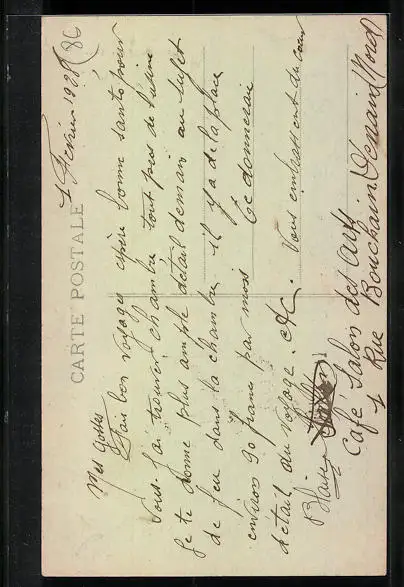 CARTE POSTALE
1 Fevrier 1928
Mes Gosses
Fai bon voyage espère bonne santé pour
vous. J'ai trouver chambre tout près de l'usine
Je te donne plus ample détail demain au sujet
de feu dans la chambre il y a de la place
environ 90 francs par mois Je donnerai
détail du voyage. etc. Vous embrassent de cœur
Café Salon des Arts
1 Rue Bouchain Denain Nord